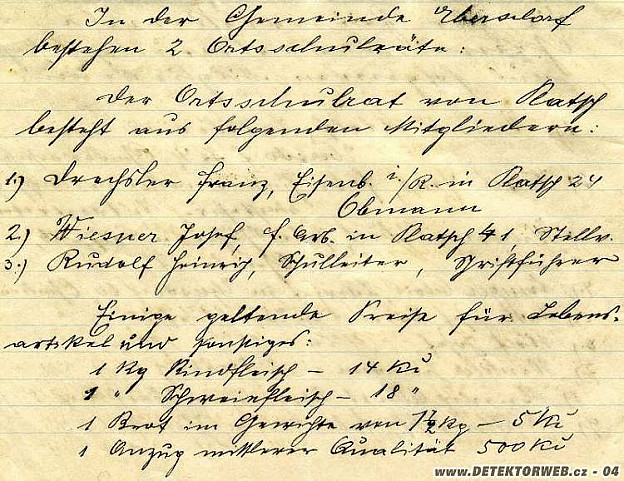 In der Gemeinde Ebersdorf
bestehen 2 Ortsschulräte:
Der Ortsschulrat von Ratsch
besteht aus folgenden Mitgliedern:
1.) Drechsler Franz, Eisenb. i/R. in Ratsch 24
Obmann
2.) Wiesner Josef, f. Arb. in Ratsch 41, Stellv.
3.) Rudolf Heinrich, Schulleiter, Schriftführer
Einige geltende Preise für Lebens-
artikel und sonstiges:
1 kg Rindfleisch – 14 Kč
1 " Schweinfleisch – 18 "
1 Brot im Gewichte von 1 1/2 kg – 5 Kč
1 Anzug mittlerer Qualität 500 Kč
www.DETEKTORWEB.cz - 04